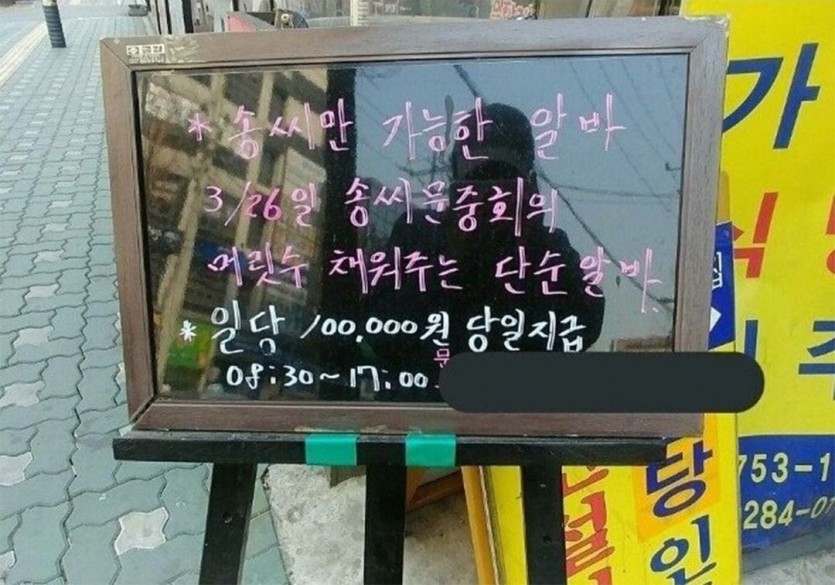 * 송씨만 가능한 알바
3/26일 송씨문중회의
머릿수 채워주는 단순알바.
* 일당 100,000원 당일지급
문
08:30~17:00
가
식
당
인
753-1
284-0